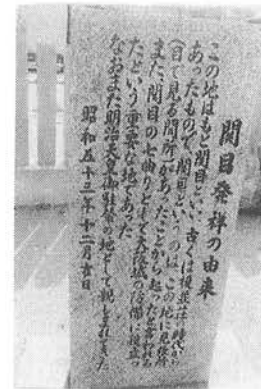 関目発祥の由来
この地はもと関目といい、古くは榎並庄時代から
あったもので、関目というのは、この地に見張所
(目で見る関所)があったことから起った名と言われる
また、関目の七曲りとして大阪城の防備に役立っ
たという重要な地であった。
なおまた明治天皇御駐輦の地として親しまれてきた
昭和五十三年十二月吉日